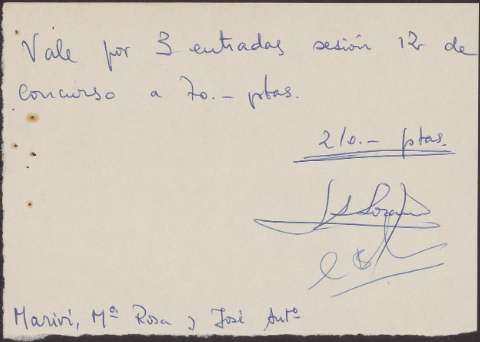 Vale por 3 entradas sesión 12 de
concurso a 70.- ptas.
210.- ptas.
Marivi, Mª Rosa y José Antº